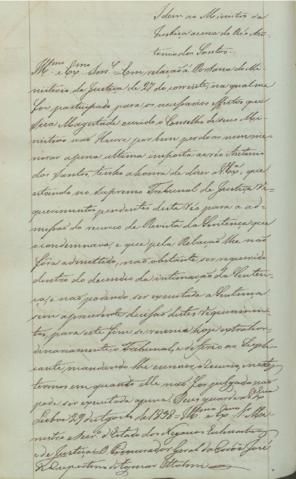 Idem ao Ministro da
Justiça acerca do Réo An-
tonio dos Santos.
Illmo e Exmo Snr = Em relação á Portaria do Mi-
nisterio da Justiça de 27 do corrente, na qual me
foi participado para os necessarios effeitos que
Sua Magestade ouvido o Conselho de seus Mi-
nistros não Houve por bem perdoar nem mi-
norar a pena ultima imposta ao réo Antonio
dos Santos, tenho a honra de dizer a V. Exa, que
estando no Supremo Tribunal de Justiça Re-
querimentos pendentes deste réo para a ad-
missão do recurso de Revista da Sentença que
o condemnava, e que pela Relação lhe não
fôra admittido, não obstante ser requerido
dentro do decendio da intimação da Senten-
ça, e não podendo ser executada a Sentença
sem a previa decisão destes requerimen-
tos, para este fim se reunio hoje extraor-
dinariamente o Tribunal, e deferio ao Suppli-
cante, mandando-lhe tomar o recurso, nestes
termos em quanto elle não for julgado não
pode ser executada a pena = Deus guarde a V. Exa
Lisboa 29 de Agosto de 1838 = Illmo e Exmo Snr Mi-
nistro e Secro d'Estado dos Negocios Ecclesiasticos
e de Justiça = O Procurador Geral da Corôa José
de Cupertino d'Aguiar Ottolini